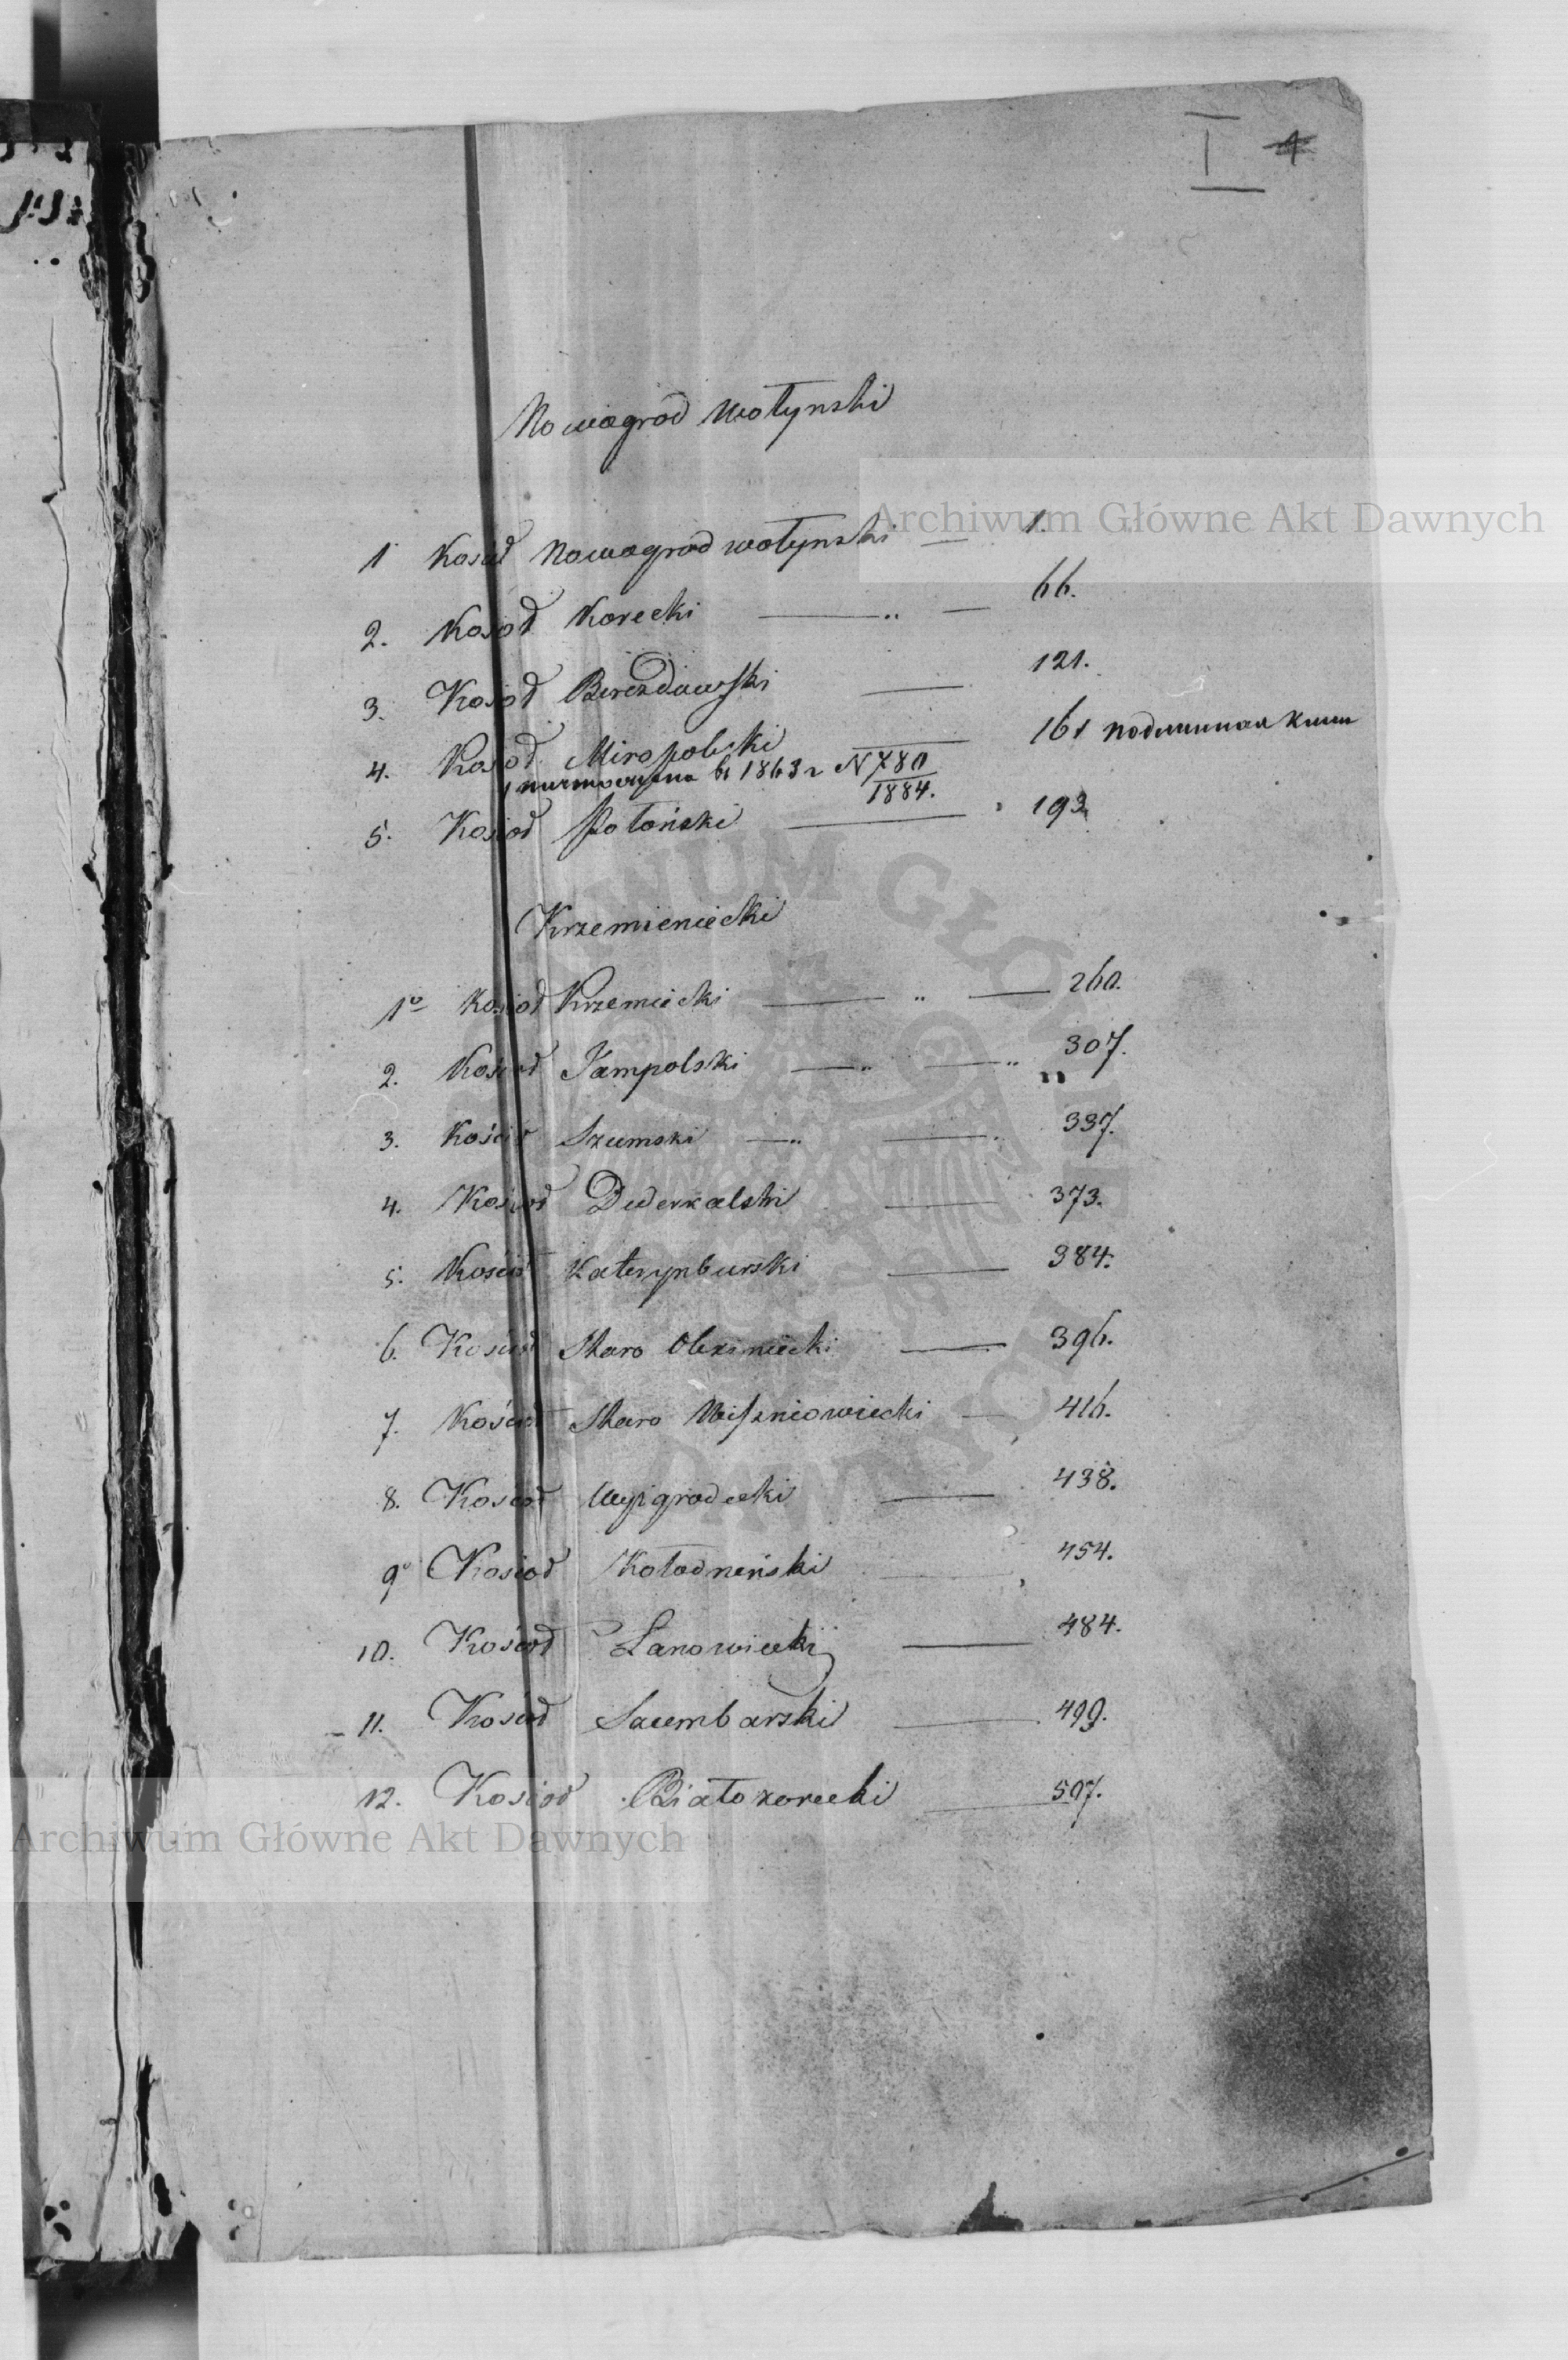 I 1
Nowogrod Wołynski
Archiwum Główne Akt Dawnych
1 Kosioł Nowogrod wołynski — 1.
2. Kosioł Korecki — „ — 66.
3. Kosioł Berezdowski — 121.
4. Kosioł Miropolski — 161 подлинная книга
въ 1863 г N 780
1884.
5. Kosioł Połoński — 193.
Krzemieniecki
1º Kosioł Krzemiecki — „ — 260.
2. Kościoł Jampolski — „ — „ 307.
3. Kościoł Szumski — „ — „ 337.
4. Kościoł Dederkalski — 373.
5. Kościoł Katerynburski — 384.
6. Kościoł Staro Olexiniecki — 396.
7. Kościoł Staro Wiszniowiecki — 416.
8. Kościoł Wyżgrodecki — 438.
9º Kosioł Kołodneński — 454.
10. Kościoł Łanowiecki — 484.
11. Kościoł Szumbarski — 499.
12. Kosioł Białozorecki — 507.
Archiwum Główne Akt Dawnych